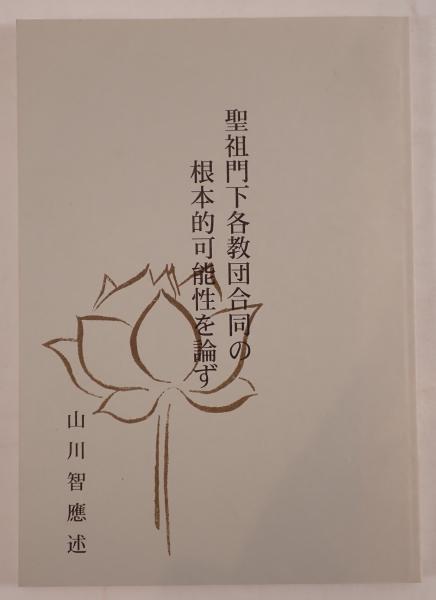 聖祖門下各教団合同の
根本的可能性を論ず
山川智應述